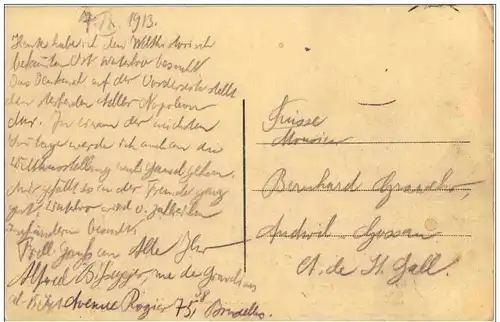 7. IX. 1913.
Heute habe ich den Welthistorisch
bekannten Ort Waterloo besucht
Das Denkmal auf der Vorderseite stellt
den sterbenden Adler Napoleon
dar. In einem der nächsten
Tage werde ich auch an die
Weltausstellung nach Gand gehen.
Mir gefällt es in der Fremde ganz
gut. Waterloo wird v. zahlreichen
besucht.
Frdl. Gruss an Alle Ihr
Alfred rue de
Avenue Rogier 75 Bruxelles.
Suisse
Monsieur
Bernhard
Andwil - Gossau
Ct. de St. Gall.